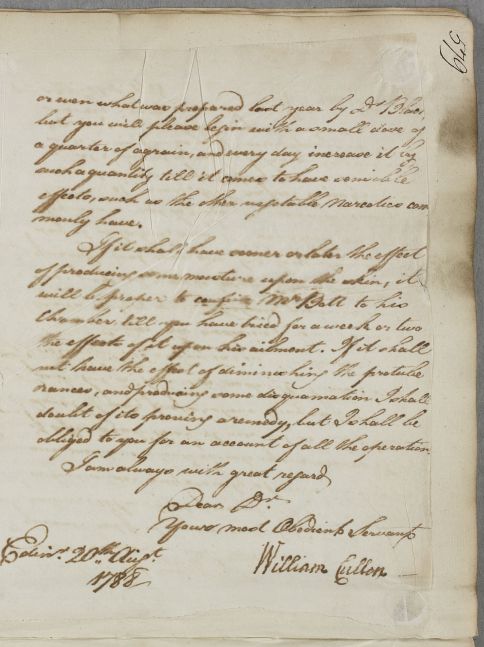 649
or even what was prepared last year by Dr. Black,
but you will please begin with a small dose of
a quarter of a grain, and every day increase it by
such a quantity till it comes to have sensible
effects, such as the other vegetable Narcotics com
monly have.
If it shall have sooner or later the effect
of producing some moisture upon the skin, it
will be proper to confine Mr. Bell to his
Chamber till you have tried for a week or two
the effects of it upon his ailment. If it shall
not have the effect of diminishing the protube
rances, and producing some disquamation I shall
doubt of its proving a remedy, but I shall be
obliged to you for an account of all the operation
I am always with great regard
Dear Dr.
Yours most Obedient Servant
Edinr. 20th Augt.
1788
William Cullen